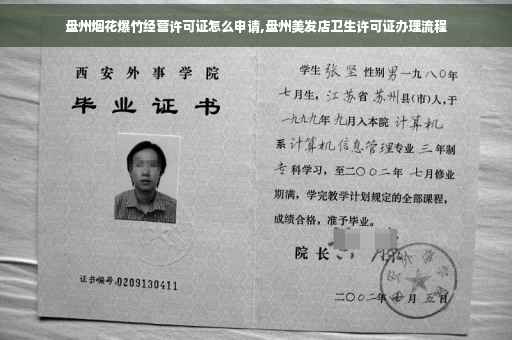 盘州烟花爆竹经营许可证怎么申请,盘州美发店卫生许可证办理流程
西安外事学院
毕业证书
证书编号:0209130411
学生张坚性别男一九八〇年
七月生,江苏省苏州县(市)人,于
一九九九年九月入本院计算机
系计算机信息管理专业三年制
专科学习,至二〇〇二年七月修业
期满,学完教学计划规定的全部课程,
成绩合格,准予毕业。
院长
二〇〇二年 月五日